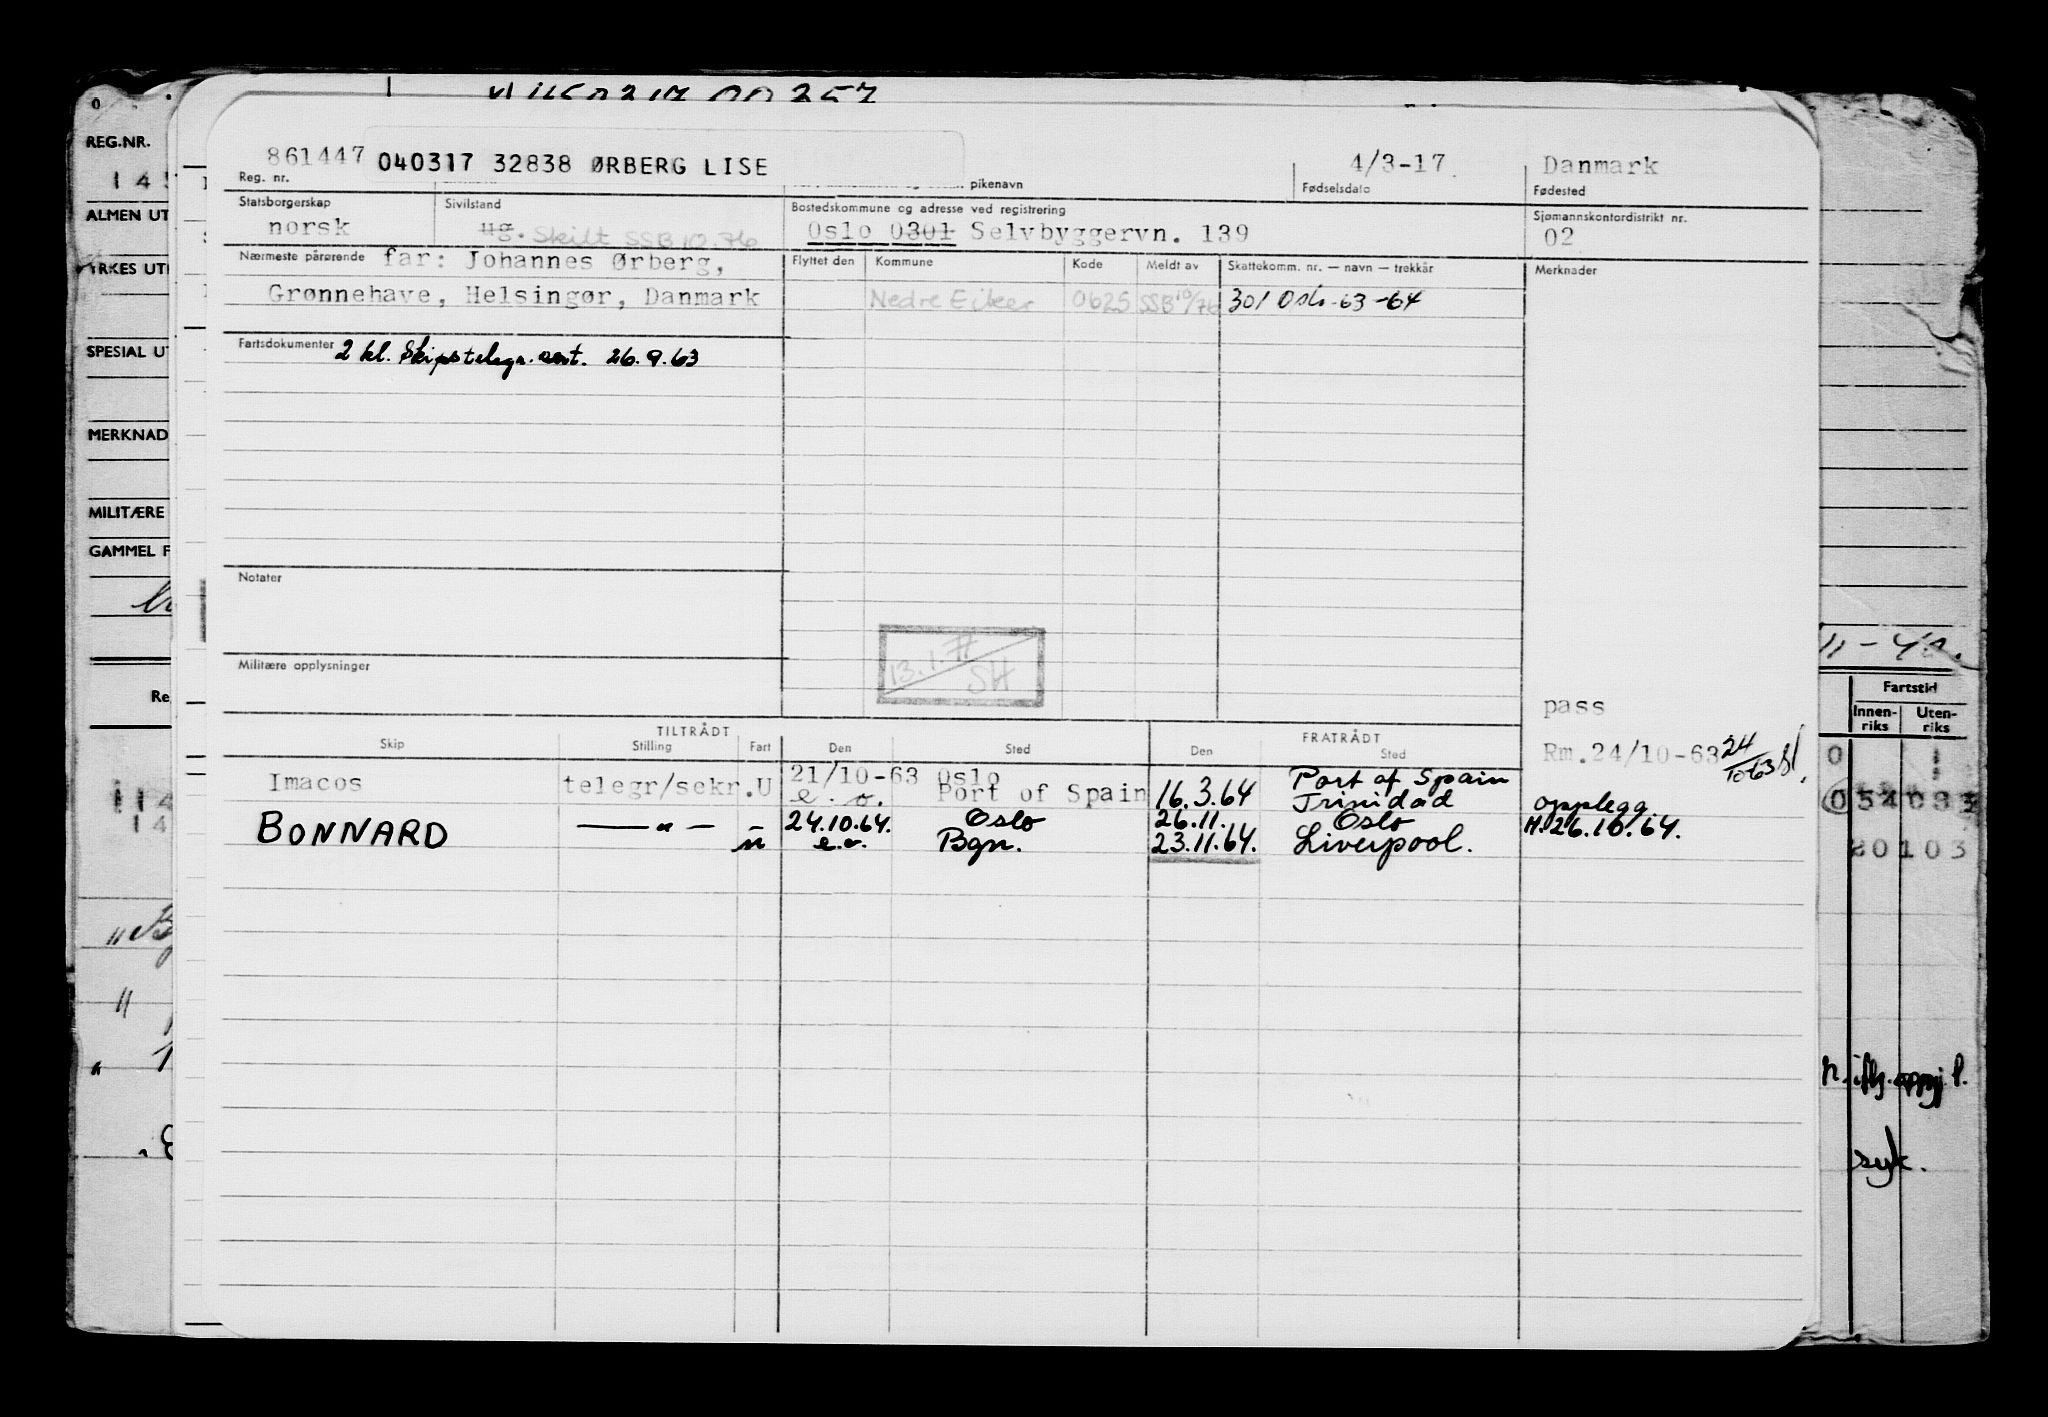 861447 040317 32838 ØRBERG LISE 4/3-17 Danmark
Reg. nr. pikenavn Fødselsdato Fødested
Statsborgerskap Sivilstand Bostedskommune og adresse ved registrering Sjømannskontordistrikt nr.
norsk ug. Skilt SSB 10.76 Oslo 0301 Selvbyggervn. 139 02
Nærmeste pårørende far: Johannes Ørberg, Flyttet den Kommune Kode Meldt av Skattekomm. nr. — navn — trekkår Merknader
Grønnehave, Helsingør, Danmark Nedre Eiker 0625 SSB 10/76 301 Oslo-63-64
Fartsdokumenter 2 kl. Skipstelegr. sert. 26.9.63
Notater
13.1.77
SH
Militære opplysninger
pass
TILTRÅDT FRATRÅDT
Skip Stilling Fart Den Sted Den Sted
Rm.24/10-63 24/10 63
Imacos telegr/sekr. U 21/10-63 Oslo Port of Spain
e.o. Port of Spain 16.3.64 Trinidad opplegg
BONNARD — " — 24.10.64. Oslo 26.11. Oslo H. 26.10.64.
e.o. Bgn. 23.11.64. Liverpool.
REG.NR.
ALMEN UT
YRKES UT
SPESIAL UT
MERKNAD
MILITÆRE
GAMMEL F
Re
11-4
Fartstid
Innen-riks Uten-riks
0 1
20103
syk.